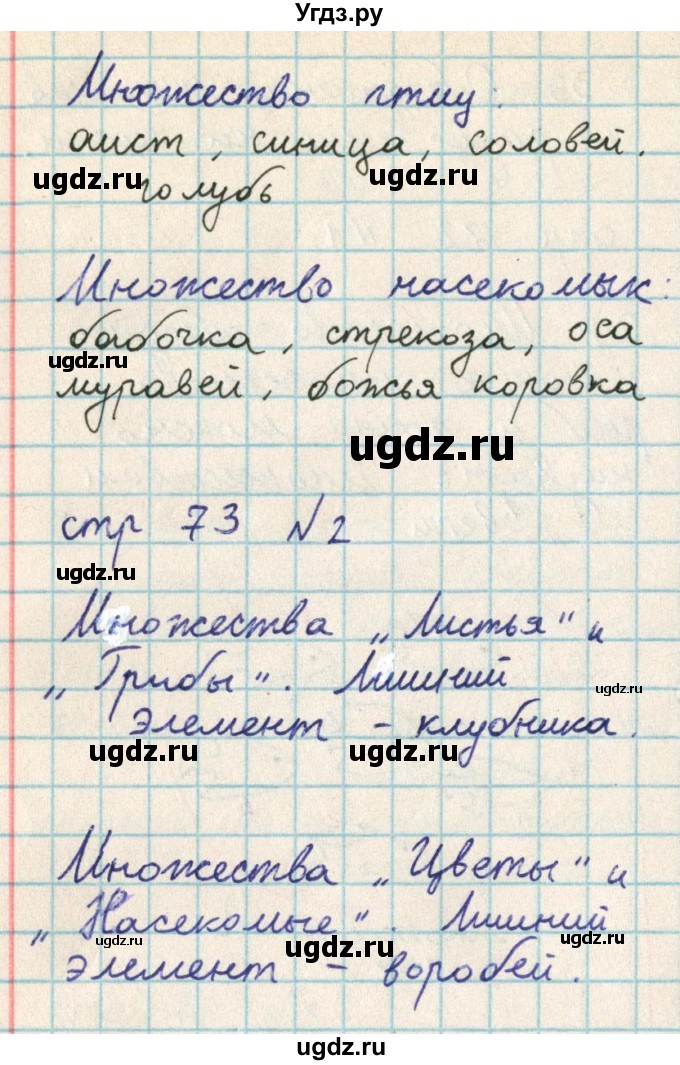 Угдз.ру
Множество птиц:
аист, синица, соловей,
ugdz.ru голубь ugdz.ru
Множество насекомых:
бабочка, стрекоза, оса
ugdz.ru
муравей, божья коровка
ugdz.ru
стр 73 №2
ugdz.ru
Множества „Листья" и
„Грибы". Лишний
ugdz.ru
элемент - клубника.
ugdz.ru ugdz.ru
Множества „Цветы" и
„Насекомые". Лишний
ugdz.ru ugdz.ru ugdz.ru
элемент - воробей.
ugdz.ru